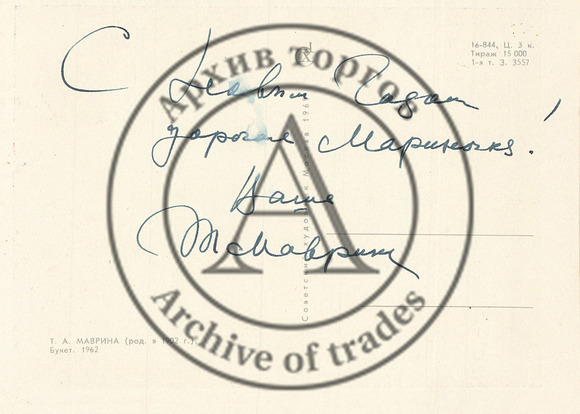 С Новым Годом
дорогая Мариночка!
Ваша
ТМаврина
16-844, Ц. 3 к.
Тираж 15 000
1-я т. З. 3557
Советский художник. Москва. 196
Т. А. МАВРИНА (род. в 1902 г.)
Букет. 1962
Архив торгов
А
Archive of trades